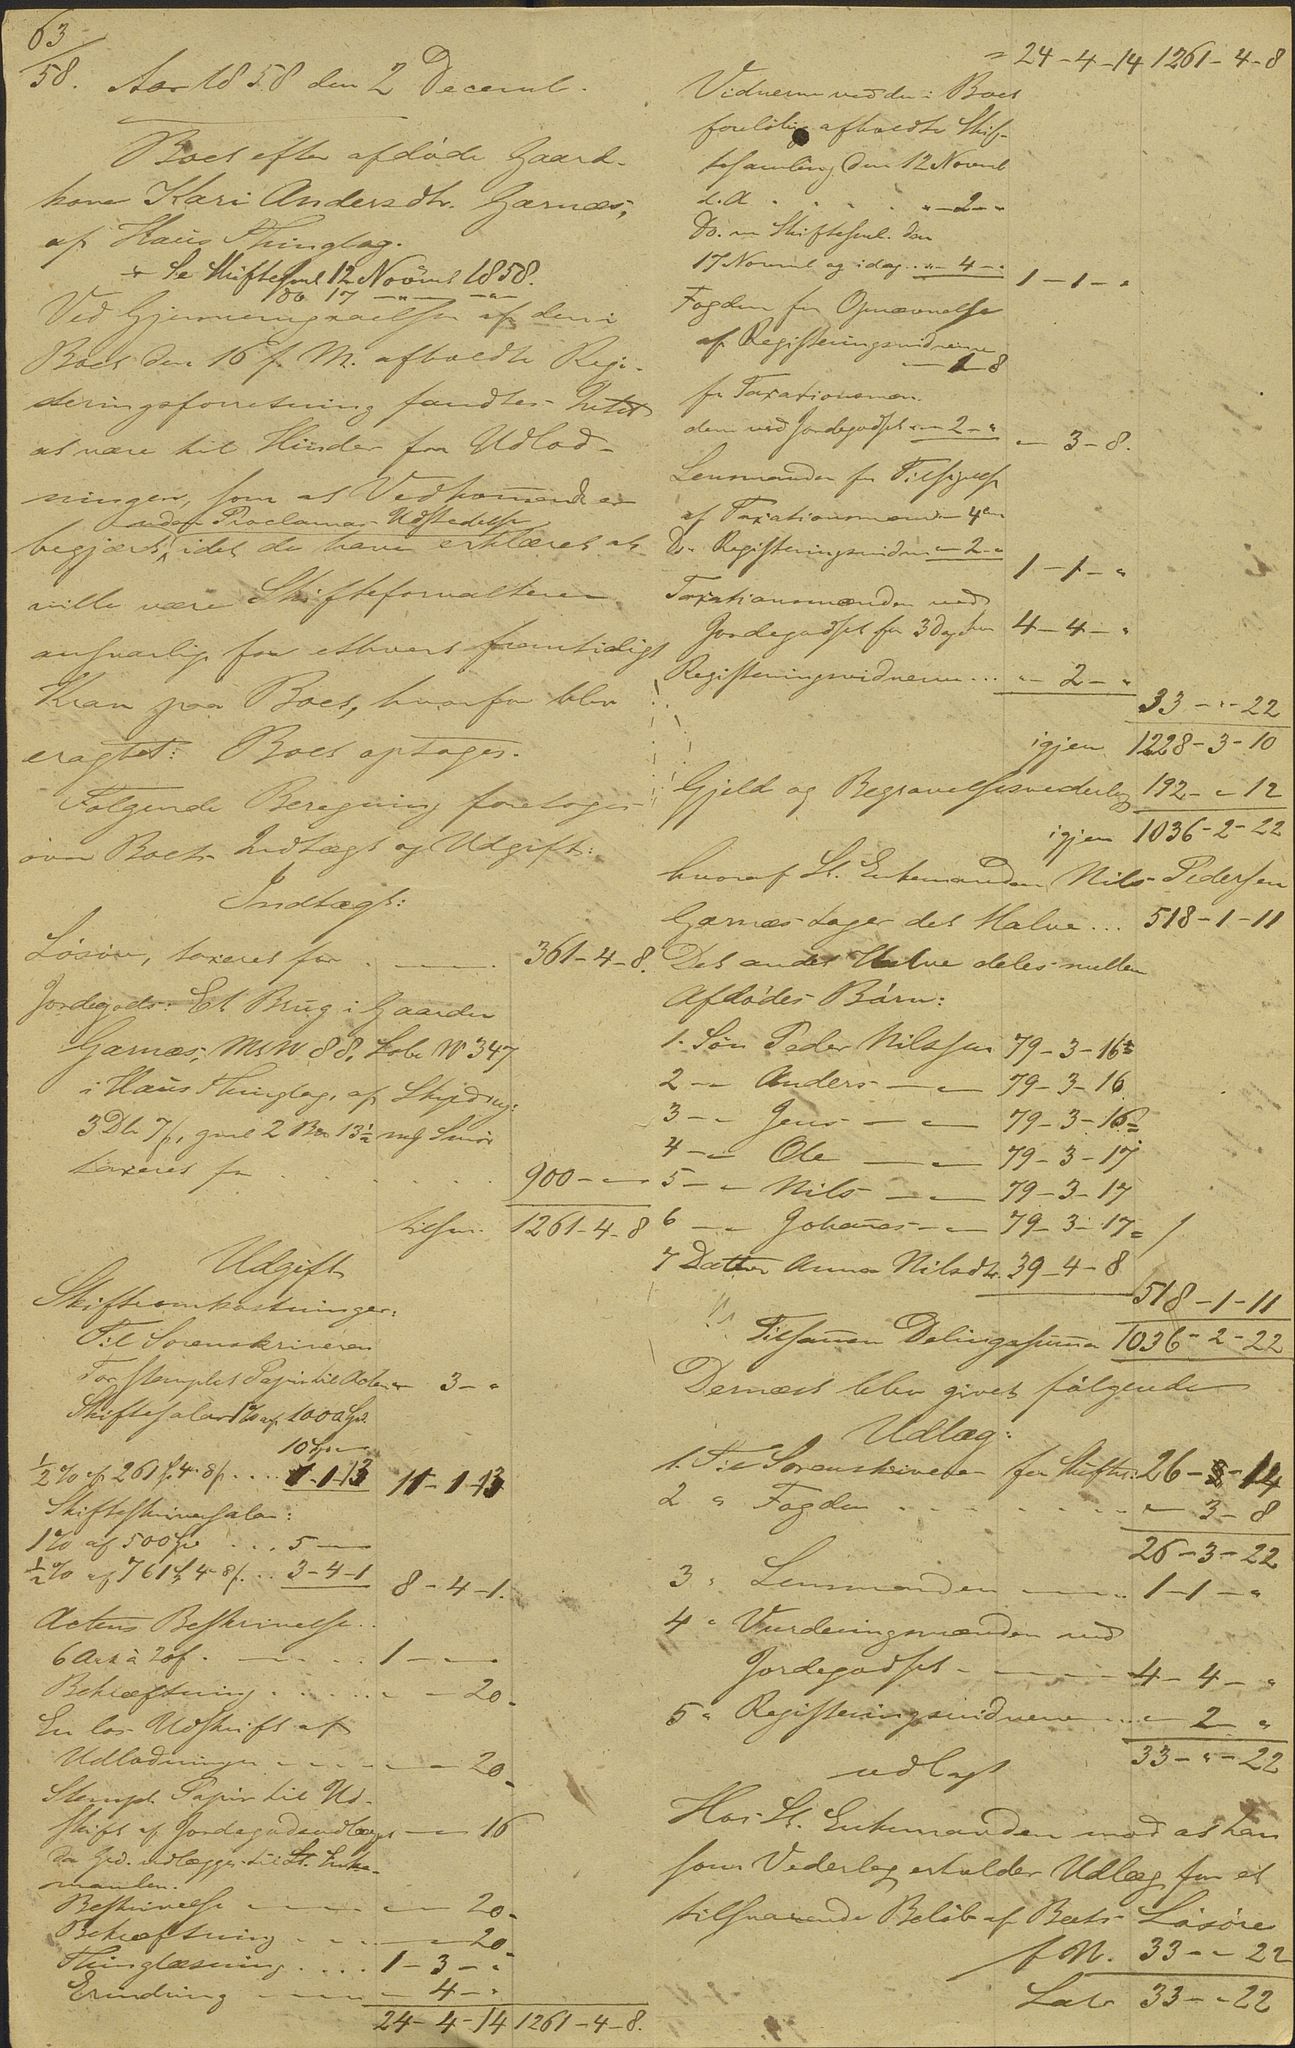 63
58. Aar 1858 den 2 Decemb.
Boet efter afdøde Gaard-
kone Kari Andersdtr. Garnæs,
af Haus Thinglag.
+ Se Skiftesml 12 Novemb 1858.
do 17 - " - -"-
Ved Gjennemgaaelsen af den i
Boet den 16 f. M. afholdte Regi-
streringsforretning fandtes Intet
at være til Hinder for Udlod-
ningen, som af Vedkommende er
uden Proclamas Udstedelse
begjært, idet de have erklæret at
ville være Skifteforvalteren
ansvarlig for ethvert fremtidigt
Krav paa Boet, hvorfor blev
eragtet: Boet optages.
Følgende Beregning foretoges
over Boets Indtægt og Udgift:
Indtægt:
Løsøre, taxeret for . — . 361-4-8.
Jordegods: Et Brug i Gaarden
Garnæs, Mr N 88, Løbe No 347
i Haus Thinglag, af Skyld ny:
3 Dlr 7 s, gml 2 13½ mk Smør
taxeret for . . . . . . 900 - "
tilsm. 1261-4-8
Udgift
Skifteomkostninger:
Til Sorenskriveren
For stemplet Papir til Acten " 3 - "
Skiftesalar 1% af 1000 Spd.
10 Spd
½ % af 261 4- 8 s. . . . 1-1-13 11-1-13
Skifteskriversalar:
1% af 500 Spd . . . 5 —
½% af 761 4-8 s. . . 3-4-1 8-4-1.
Actens Beskrivelse
6 Ark à 20 s. - - - . . 1 - - "
Bekræftning . . . . . " - 20 -
En løs Udskrift af
Udlodningen - - - - " - 20 -
Stempl. Papir til Ud-
skrift af Jordegodsudlæg - " - 16
da Jrd. udlægges til St. Enke-
manden.
Beskrivelse - - - - " - 20 -
Bekræftning . - - . - " - 20 -
Thinglæsning . . . . 1 - 3 - "
Erindring - - - - " - 4 - "
24-4-14 1261-4-8.
= 24-4-14 1261-4-8
Vidnerne ved den i Boet
foreløbig afholdte Skif-
tesamling den 12 Novemb
d. A. . . . . . " - 2 - "
Do. ved Skiftesml. den
17 Novemb og idag . . " - 4 - " 1 - 1 - "
Fogden for Opnævnelse
af Registreringsvidnerne
" - 1 - 8
for Taxationsmæn-
dene ved Jordegodset " - 2 - " " - 3 - 8.
Lensmanden for Tilsigelse
af Taxationsmænd " 4 "
Do. Registreringsvidner " - 2 - " 1 - 1 - "
Taxationsmændene ved
Jordegodset for 3 Dage hver 4 - 4 - "
Registreringsvidnerne . . . " - 2 - "
33 - " - 22
igjen 1228-3-10
Gjeld og Begravelsesvederlag 192 - " - 12
igjen 1036-2-22
hvoraf St. Enkemanden Nils Pedersen
Garnæs tager det Halve . . . 518-1-11
Det andet Halve deles mellem
Afdødes Børn:
1. Søn Peder Nilssen 79-3-16
2 - " - Anders - " - 79-3-16
3 - " - Jens - " - 79-3-16
4 - " - Ole - " - 79-3-17
5 - " - Nils - " - 79-3-17
6 - " - Johannes - " - 79-3-17
7 Datter Anna Nilsdtr. 39-4-8
518-1-11
Tilsammen Delingssumma 1036-2-22
Dernæst blev givet følgende
Udlæg:
1. Til Sorenskriveren for Skifteo: 26 - " - 14
2 " Fogden . . . . . . . " - 3 - 8
26-3-22
3 " Lensmanden - - - - 1-1- "
4 " Vurderingsmændene ved
Jordegodset - - - - 4-4- "
5 " Registreringsvidnerne . . . " - 2 - "
33 - " - 22
udlagt
Hos St. Enkemanden mod at han
som Vederlag erholder Udlæg for et
tilsvarende Beløb af Boets Løsøre
f N. 33 - " - 22
Late 33 - " - 22